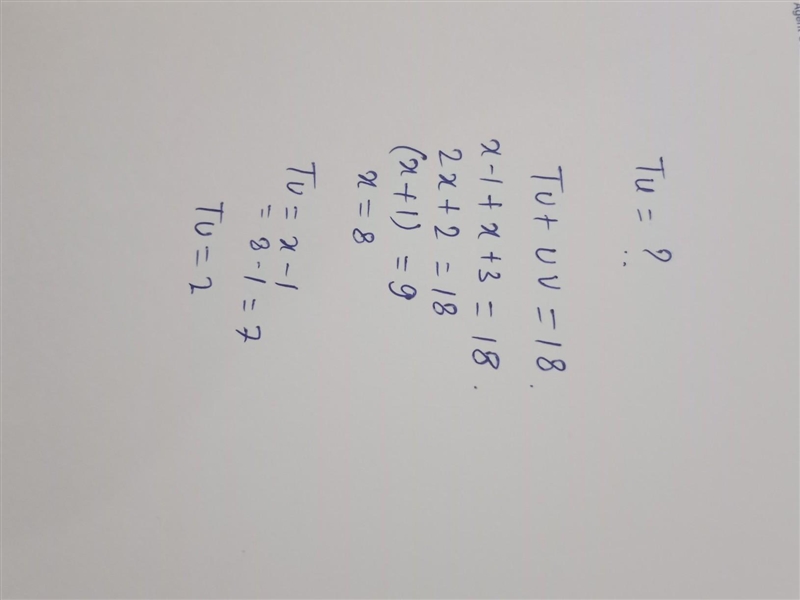 Tu = ?
Tu + uv = 18.
x-1 + x+3 = 18.
2x + 2 = 18
(x+1) = 9
x = 8
Tu = x-1
= 8-1 = 7
Tu = 2